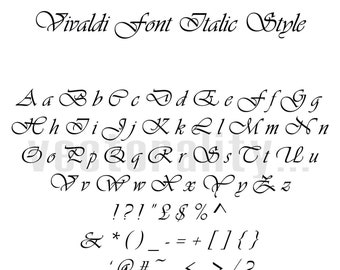 Vivaldi Font Italic Style
A a B b C c D d E e F f G g
H h I i J j K k L l M m N n
O o P p Q q R r S s T t U u
vectorality...
V v W w X x Y y Z z
! ? ! " £ $ % ^
& * ( ) _ - = + [ ] { }
' @ # ~ < > / ?